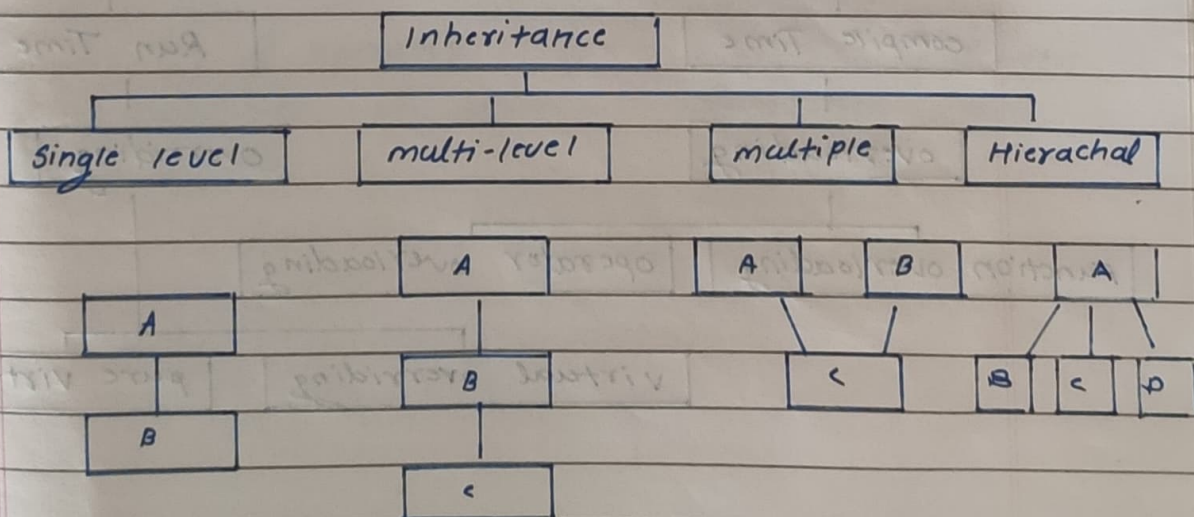 Inheritance
Single level multi-level multiple Hierachal
A A B A
A
B C B C D
B
C